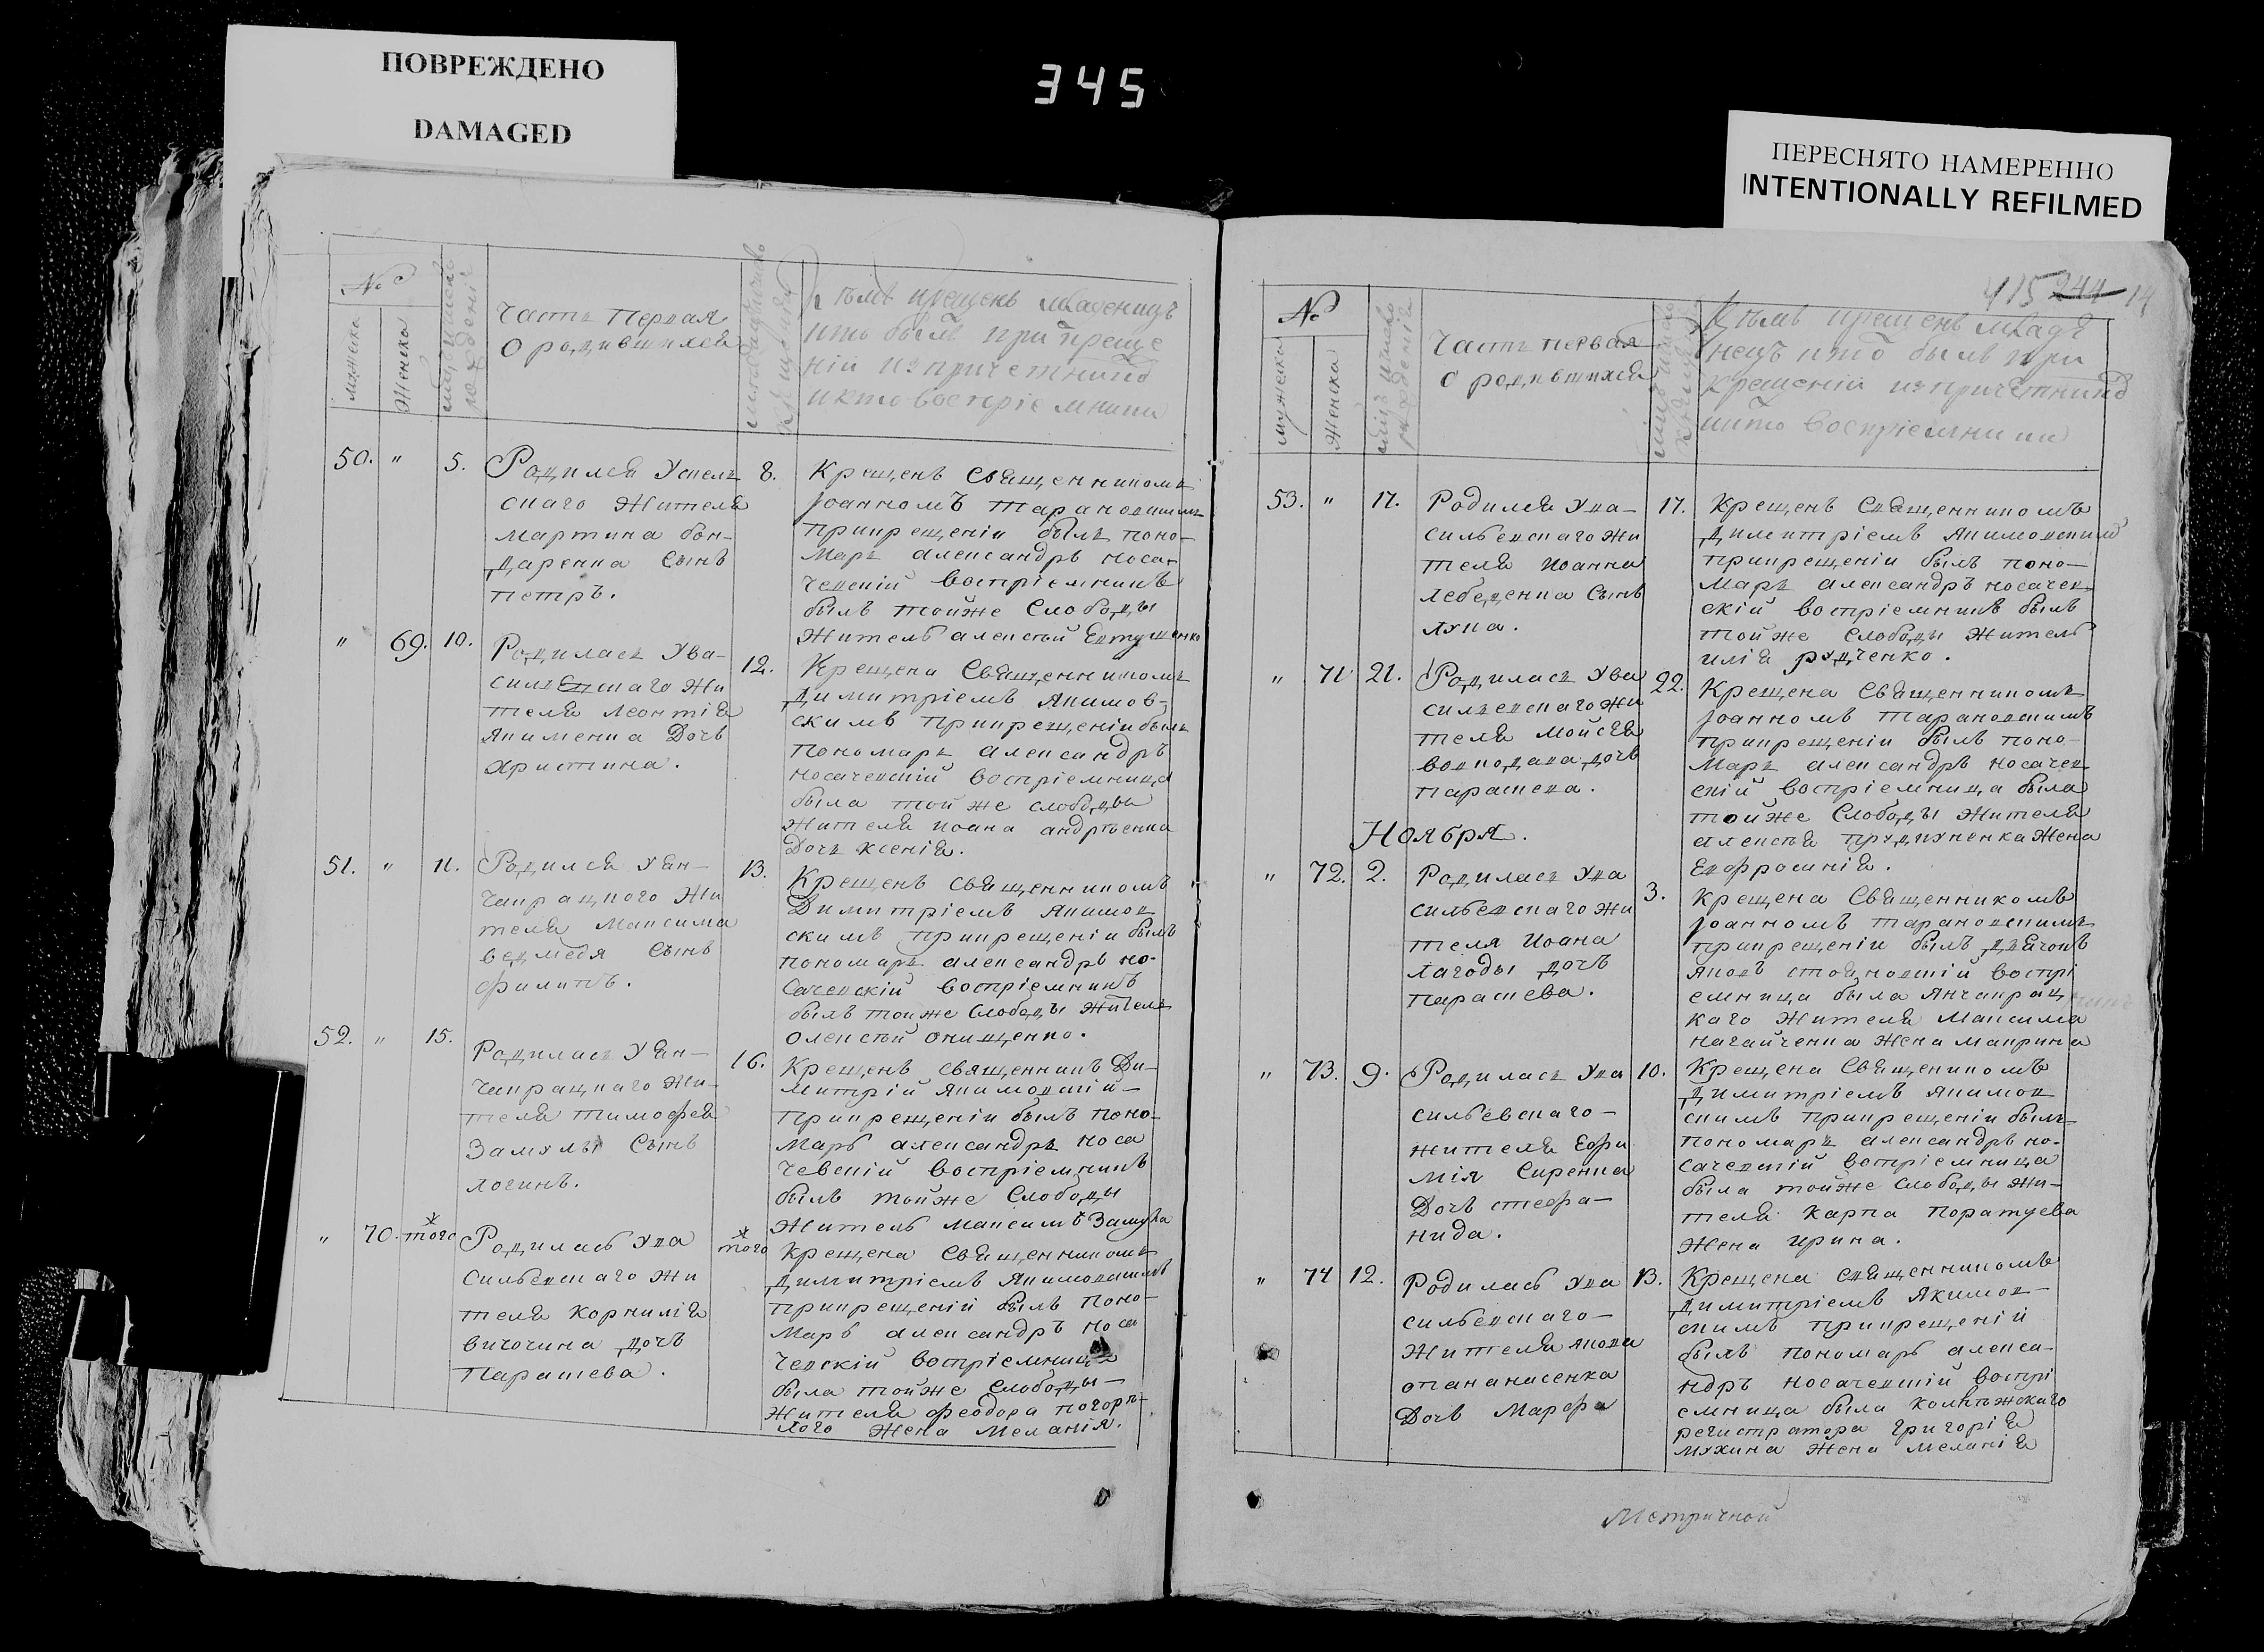 ПОВРЕЖДЕНО
DAMAGED
345
ПЕРЕСНЯТО НАМЕРЕННО
INTENTIONALLY REFILMED
№
мужеска
Женска
Часть Первая
О родившихся
Кѣмъ крещенъ младенецъ
кто былъ при креще
ніи изъ причетниковъ
и кто воспріемники
50. " 5.
Родился
скаго Жителя
Мартина бон-
даренка Сынъ
петръ.
8.
Крещенъ Священникомъ
Іоанномъ Тарановскимъ
прикрещеніи былъ поно-
Марь александръ носа-
чевскій воспріемникъ
былъ тойже Слободы
Житель алексѣй Евтушенко
" 69. 10.
Родилась Ува-
сильевскаго Жи
теля Леонтія
Якименка Дочь
Христина.
12.
Крещена Священникомъ
Димитріемъ Якимов-
скимъ прикрещеніи былъ
пономарь александръ
носачевскій воспріемница
была той же слободы
Жителя иоана андрѣенка
Дочь ксенія.
51. " 11.
Родился Уян-
чакрацкого Жи
теля Максима
ведмедя Сынъ
филипъ.
13.
Крещенъ священникомъ
Димитріемъ Якимов
скимъ прикрещеніи былъ
пономарь александръ но-
сачевскій воспріемникъ
былъ тойже Слободы Житель
олексѣй онищенко.
52. " 15.
Родился Уян-
чакрацкаго Жи-
теля тимофея
Замулы Сынъ
логинъ.
16.
Крещенъ священникъ Ди-
митрій Якимовскій-
прикрещеніи былъ поно-
Марь александръ носа
чевскій воспріемникъ
былъ тойже Слободы
Житель максимъ Замула
" 70. того
Родилась Ува
сильевскаго жи
теля корнилія
вигочина дочь
Парашева.
того
Крещена Священникомъ
Димитріемъ Якимовскимъ
прикрещеній былъ поно-
Марь александръ носа
чевскій воспріемница
была тойже Слободы-
Жителя феодора погорѣ-
лого Жена меланія.
115 244 14
№
мужеска
Женска
Часть первая
о родившихся
Кѣмъ крещенъ младе
нецъ кто былъ при
крещеніи изъ причетниковъ
и кто воспріемники
53. " 17.
Родился Ува-
сильевскаго жи
теля иоанна
лебеденка Сынъ
лука.
17.
Крещенъ Священникомъ
Димитріемъ Якимовскимъ
прикрещеніи былъ поно-
Марь александръ носачев
скій воспріемникъ былъ
тойже Слободы житель
илія рудченко.
" 71 21.
Родилась Ува
сильевскаго жи
теля мойсея
воевода дочь
параскева.
22.
Крещена Священникомъ
Іоанномъ тарановскимъ
прикрещеніи былъ поно-
Марь александръ носачев
скій воспріемница была
тойже Слободы жителя
алексѣя Жена
Евфросинія.
Ноября.
" 72. 2.
Родилась Ува
сильевскаго жи
теля иоана
лагоды дочь
парасева.
3.
Крещена Священникомъ
Іоанномъ тарановскимъ
прикрещеніи былъ дьячокъ
яковъ стояновскій воспрі
емница была Янчакрац
каго жителя максима
нагайченка жена маврина
" 73. 9.
Родилась Ува
сильевскаго-
жителя Ефи
мія Сиренка
Дочь стефа-
нида.
10.
Крещена Священикомъ
Димитріемъ Якимов
скимъ прикрещеніи былъ
пономарь александръ но-
сачевскій вотріемница
была тойже Слободы жи-
теля карпа
жена ирина.
" 74 12.
Родилась Ува
сильевскаго-
жителя якова
опанасенка
Дочь Марфа
13.
Крещена священникомъ
Димитріемъ Якимов-
скимъ прикрещеній
былъ пономарь алекса-
ндръ носачевскій воспрі
емница была колѣжскаго
регистратора григорія
мухина жена меланія
Метричной